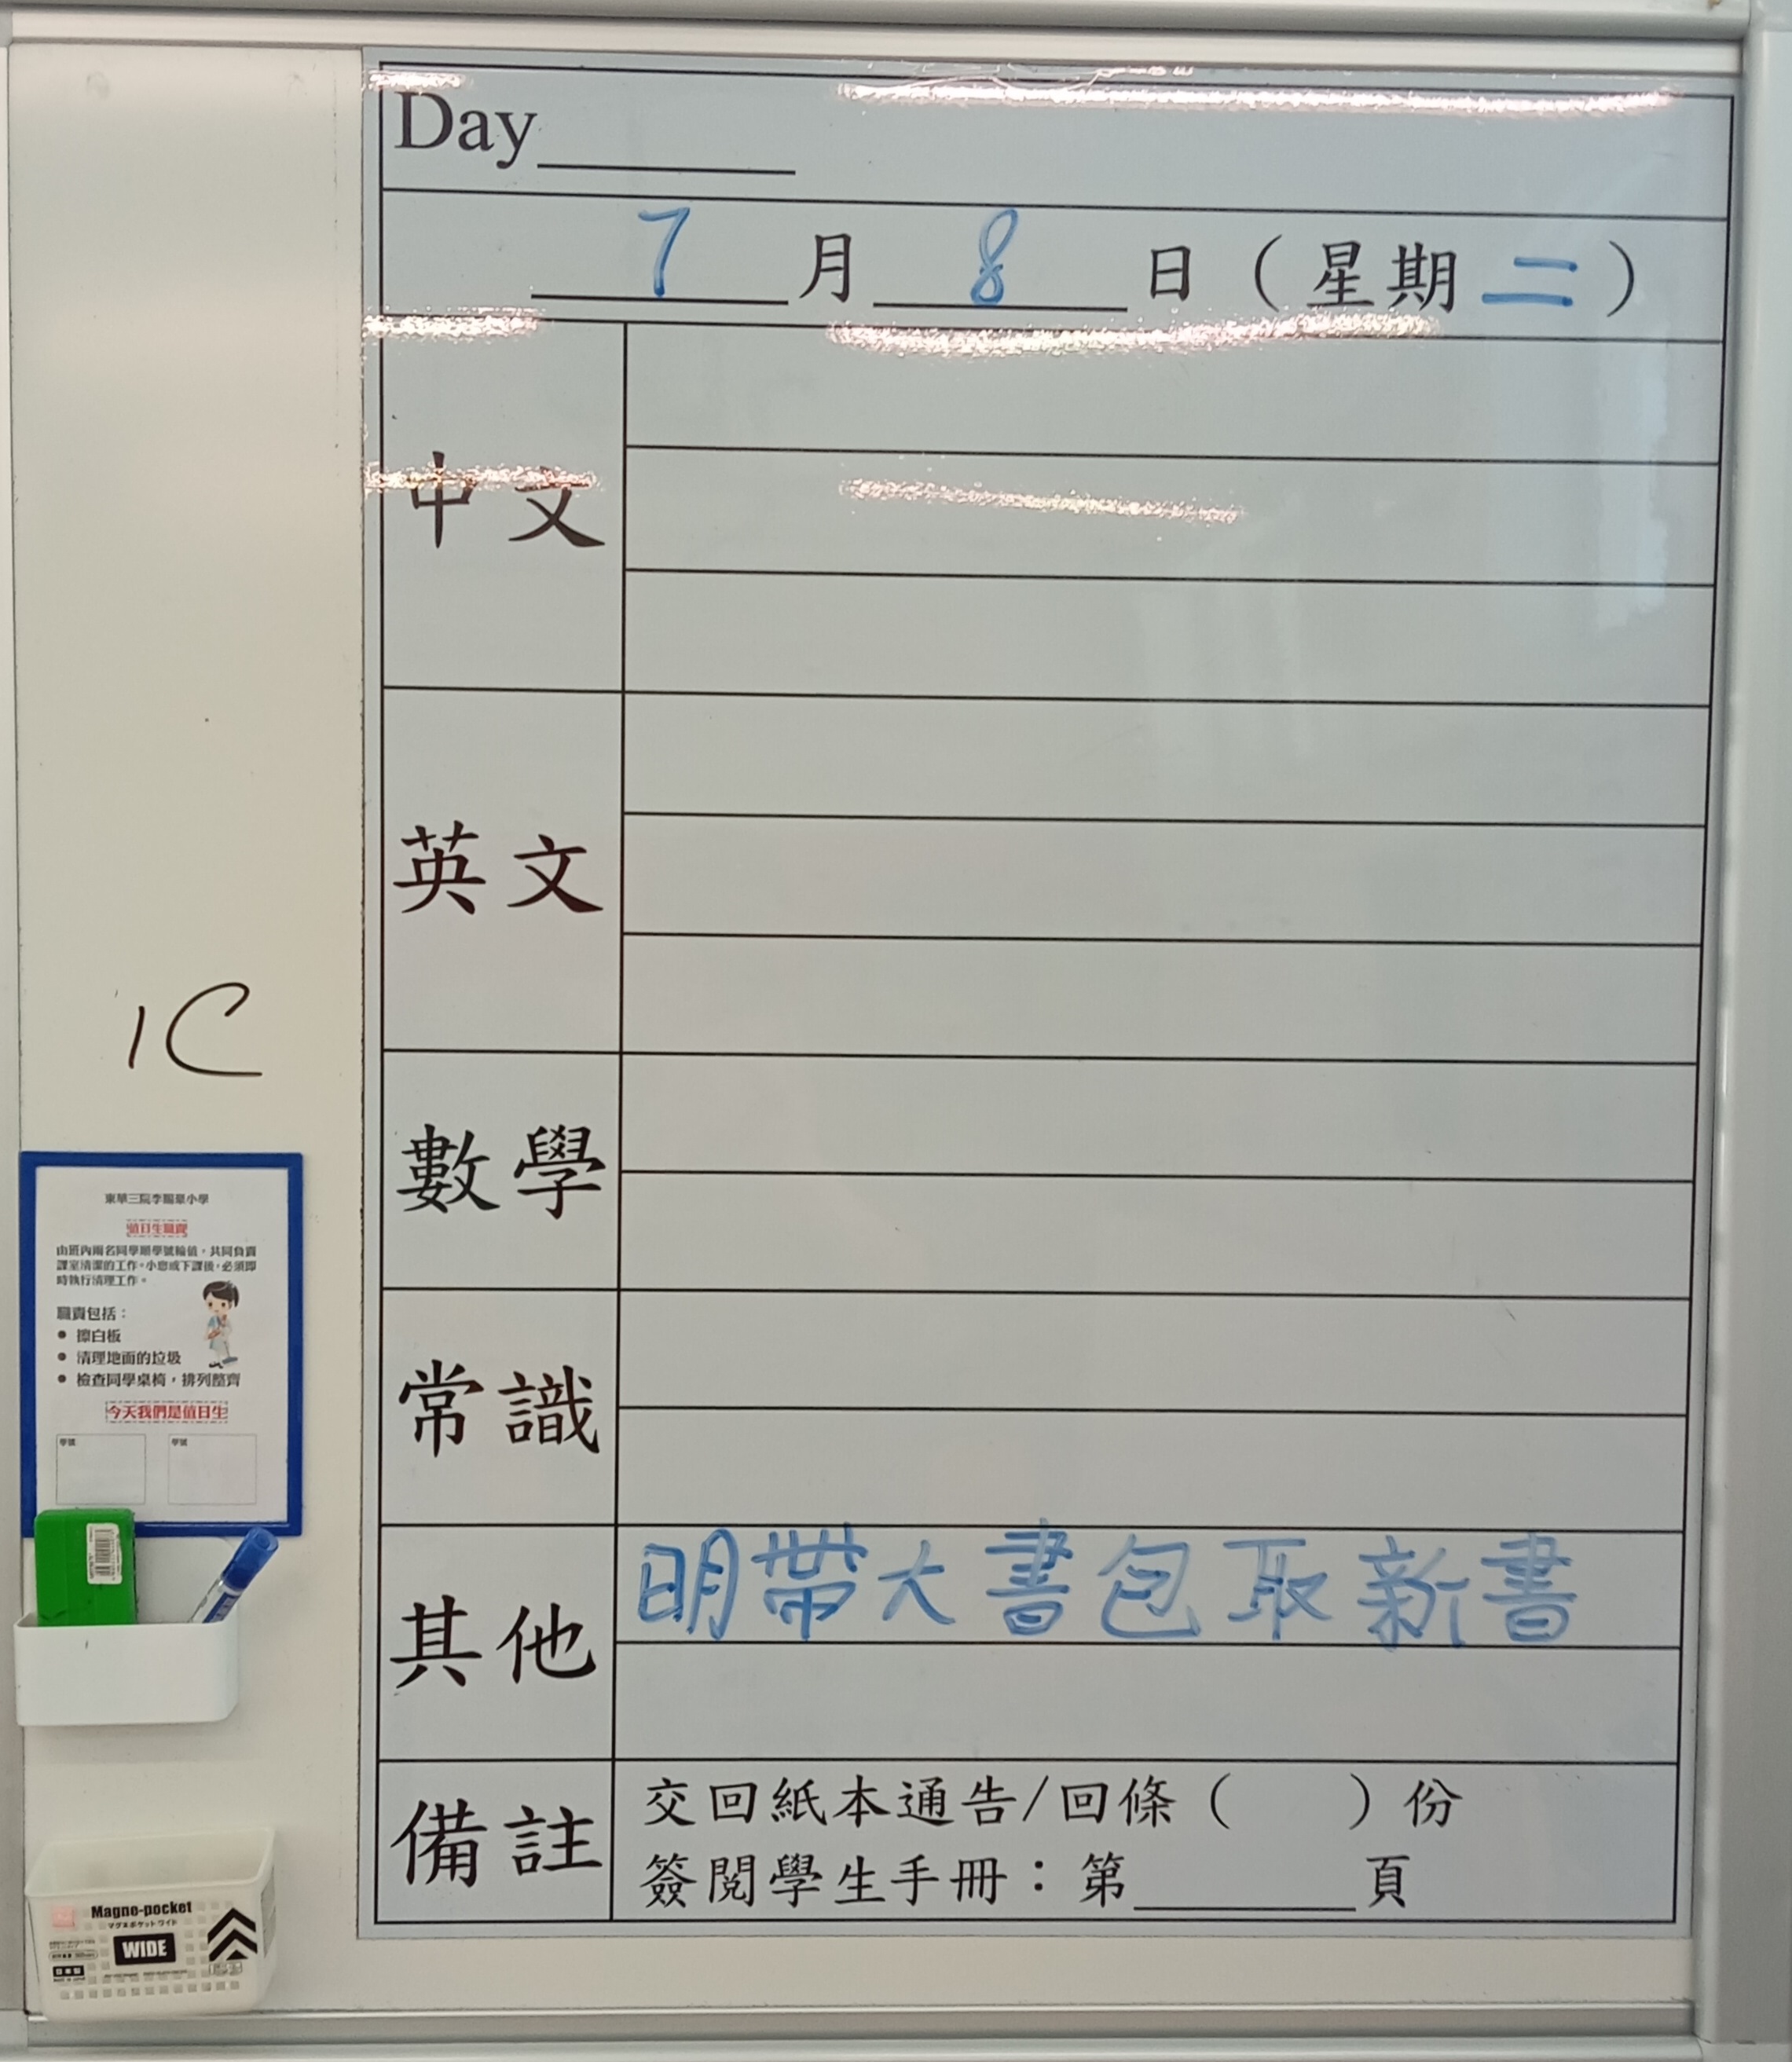 Day
7 月 8 日 (星期 二)
中文
英文
數學
常識
其他
明帶大書包取新書
備註
交回紙本通告/回條( )份
簽閱學生手冊:第 頁
1C
值日生職責
由班內兩名同學順學號輪值,共同負責
課室清潔的工作。小息或下課後,必須即
時執行清理工作。
職責包括:
● 擦白板
● 清理地面的垃圾
● 檢查同學桌椅,排列整齊
今天我們是值日生
學號
學號
Magne-pocket
マグネポケット ワイド
WIDE
日本製